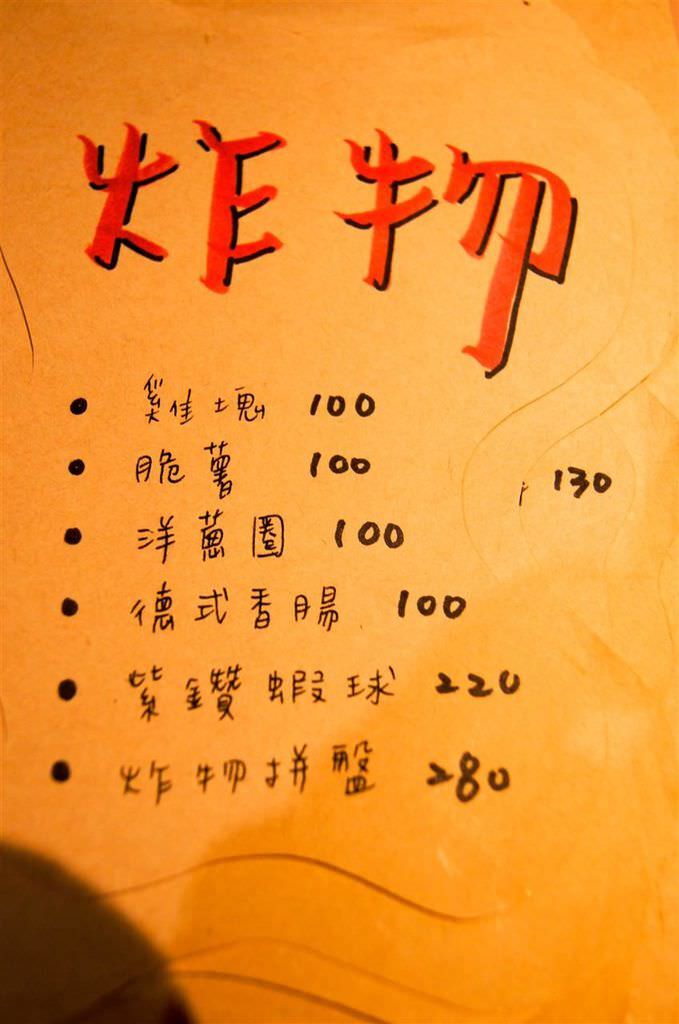 炸物
• 雞塊 100
• 脆薯 100
130
• 洋蔥圈 100
• 德式香腸 100
• 紫鑽蝦球 220
• 炸物拼盤 280